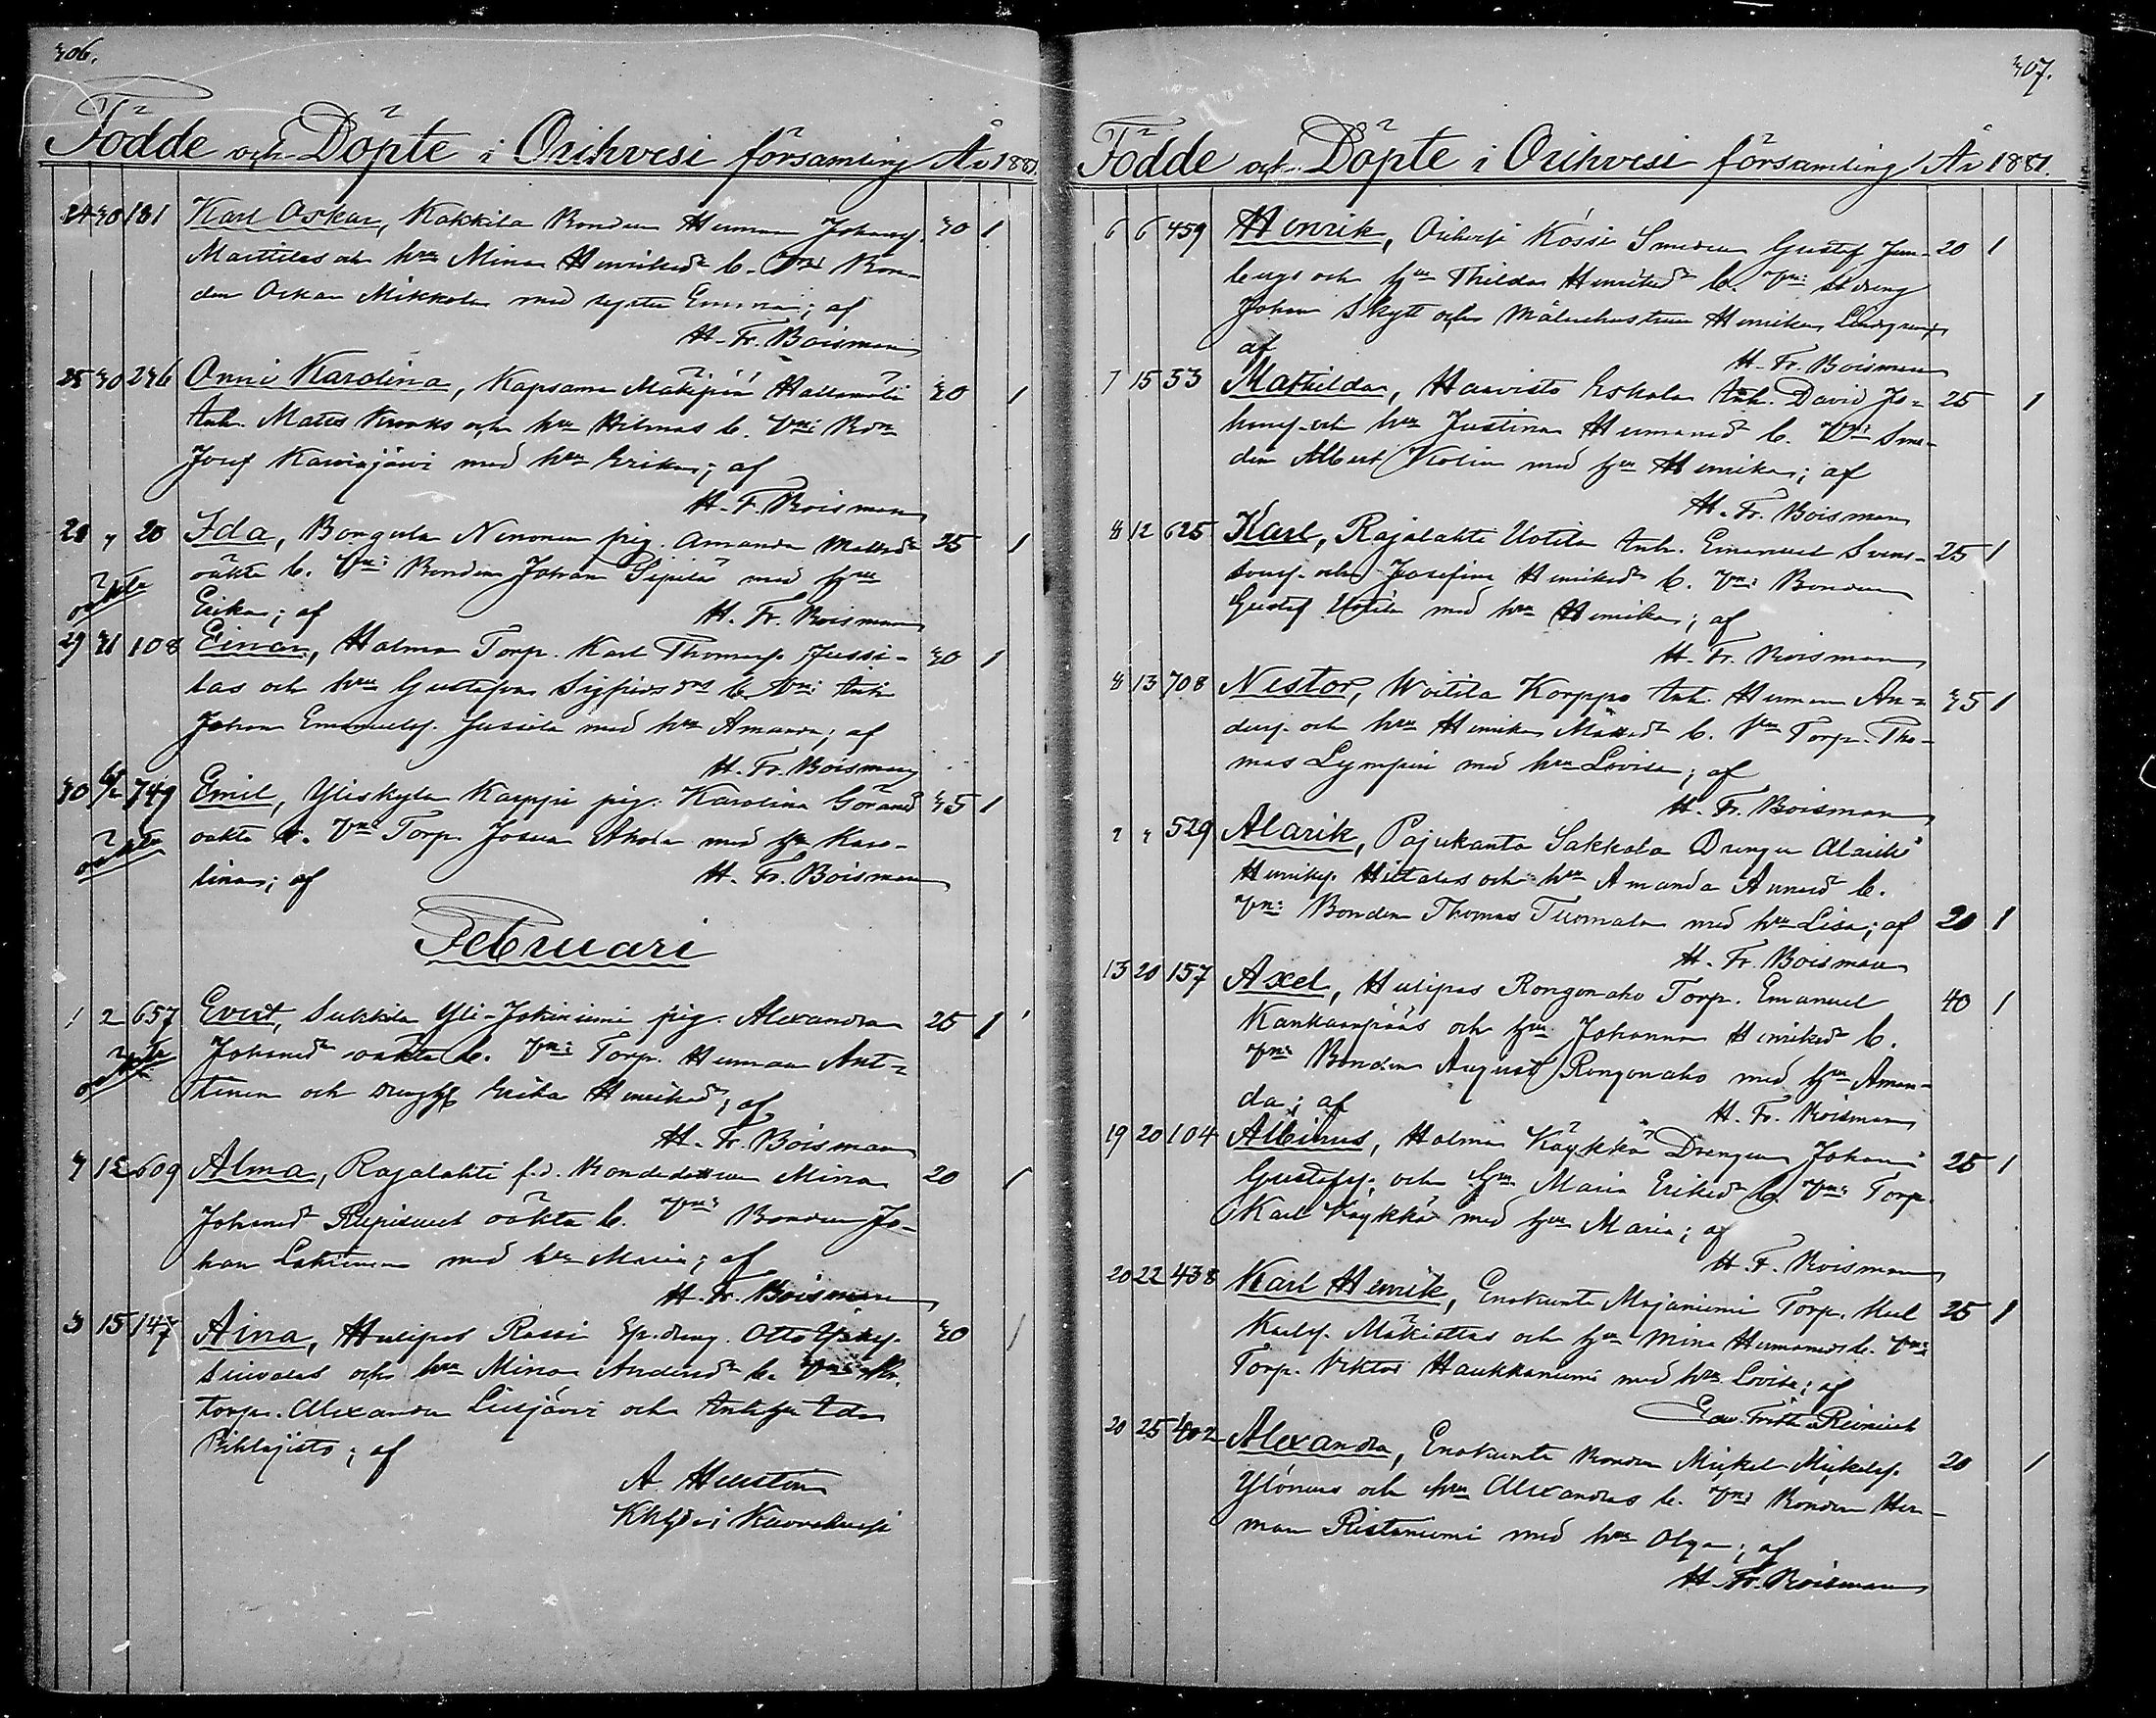 306.
Födde och Döpte i Orihvesi församling År 1881.
24 30 181 Karl Oskar, Kakkila Bonden Herman Johansf. 30 1
Marttilas och hru Mina Henriksdr b. Vne: Bon-
den Oskar Mikkola med syster Emma; af
H. Fr. Boisman
25 30 236 Onni Karolina, Kapsama Mäkipää Hallamäli 30 1
Inh. Matts Kronks och hru Hilmas b. Vne: Bon
Josef Kawiajärvi med hru Erika; af
H. F. Boisman
28 " 20 Ida, Bongula Nenonen pig. Amanda Mattsdr 25 1
oäkta b. Vne: Bonden Johan Sipilä med hru
oäkta
Erika; af H. Fr. Boisman
29 31 108 Einar, Holma Torp. Karl Thomasf. Jussi- 30 1
las och hru Gustafva Sigfridsdrs b. Vne: Inh
Johan Emanuelsf. Jussila med hru Amanda; af
H. Fr. Boisman
30 6/2 749 Emil, Yliskylä Karppi pig. Karolina Göransdr 35 1
oäkta b. Vne: Torp. Josua Ahola med hru Karo-
oäkta
lina; af H. Fr. Boisman
Februari
1 2 657 Evert, Sukkila Yli-Jokiniemi pig. Alexandra 25 1
oäkta
Johansdr oäkta b. Vne: Torp. Herman Ant-
tinen och Erika Henriksdr; af
H. Fr. Boisman
3 12 609 Alma, Rajalahti f.d. Bondedottren Mina 20 1
Johansdr Repisuel oäkta b. Vne: Bonden Jo-
han Lahtinen med hru Maria; af
H. Fr. Boisman
3 15 147 Aina, Hulipas Rossi Sp. dreng. Otto 30 1
och hru Mina Andersdr b. Vne:
torp. Alexander Liesjärvi och Inh. hu Ida
Pihlajisto; af
A. Hellstén
i Kuorehvesi
307.
Födde och Döpte i Orihvesi församling År 1881.
6 6 459 Henrik, Orihvesi Kössi Smeden Gustaf Jern- 20 1
bergs och hru Thildas Henriksdr b. Vne: dreng
Johan Skytt och Målarhustrun Henrika Lindgren;
af H. Fr. Boisman
7 15 53 Mathilda, Haavisto Eskola Inh. David Jo- 25 1
hansf. och hru Justina Hermansdr b. Vne: Sme-
den Albert Kolin med hru Henrika; af
H. Fr. Boisman
8 12 625 Karl, Rajalahti Uotila Inh. Emanuel Svens- 25 1
sonsf. och Josefina Henriksdr b. Vne: Bonden
Gustaf Uotila med hru Henrika; af
H. Fr. Boisman
8 13 708 Nestor, Woitila Korppo Inh. Herman An- 35 1
dersf. och hru Henrika Mattsdr b. Vne Torp. Tho-
mas Lympini med hru Lovisa; af
H. Fr. Boisman
" " 529 Alarik, Pajukanta Sakkola Drengen Alarik
Henriksf. Hietalas och hru Amanda b.
Vne: Bonden Thomas Tuomala med hru Lisa; af 20 1
H. Fr. Boisman
13 20 157 Axel, Hulipas Rongonaho Torp. Emanuel 40 1
Kankaanpääs och hru Johanna Henriksdr b.
Vne: Bonden August Rongonaho med hru Aman-
da; af H. Fr. Boisman
19 20 104 Albinus, Holma Käykkä Drengen Johan 25 1
Gustafsf. och hru Maria Eriksdr b. Vne: Torp.
Karl Käykkä med hru Maria; af
H. F. Boisman
20 22 438 Karl Henrik, Enokunta Majaniemi Torp. Karl 25 1
Karlsf. Mäkiattas och hru Mina Hermansdr b. Vne:
Torp. Viktor Haukkaniemi med hru Lovisa; af
20 25 402 Alexandra, Enokunta Bonden Mickel Mickelsf. 20 1
Ylönens och hru Alexandras b. Vne: Bonden Her-
man Ristaniemi med hru Olga; af
H. Fr. Boisman